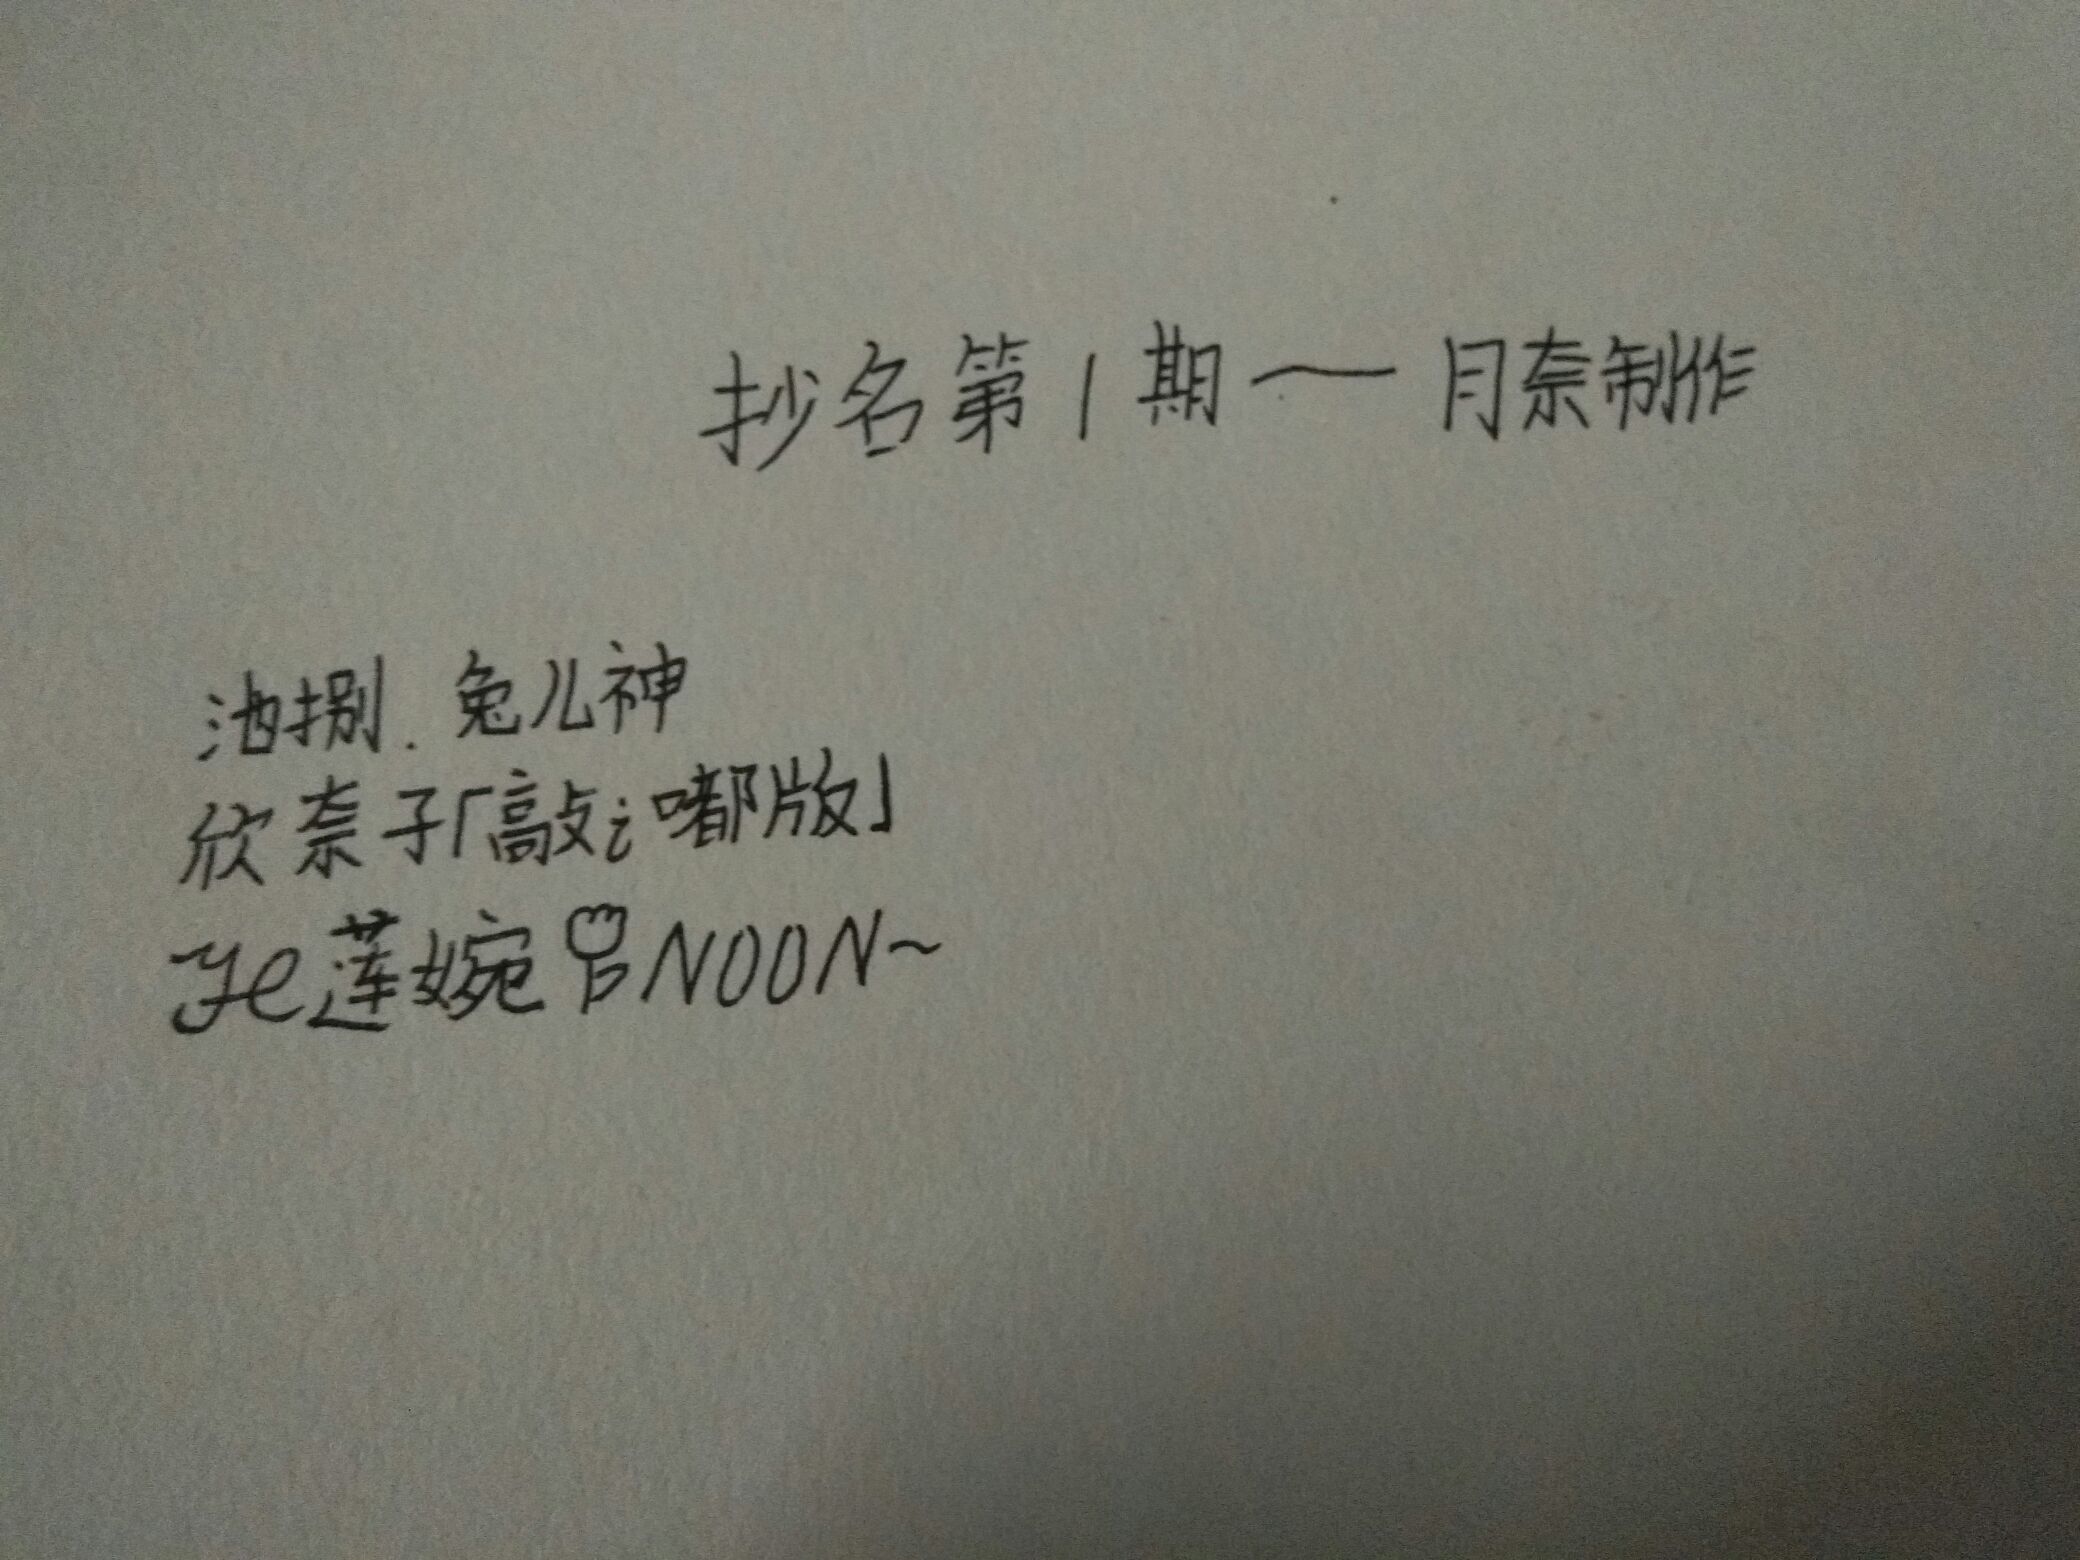 抄名第1期一月奈制作
池捌.兔儿神
欣奈子「敲i嘟版」
ye莲婉NOON~